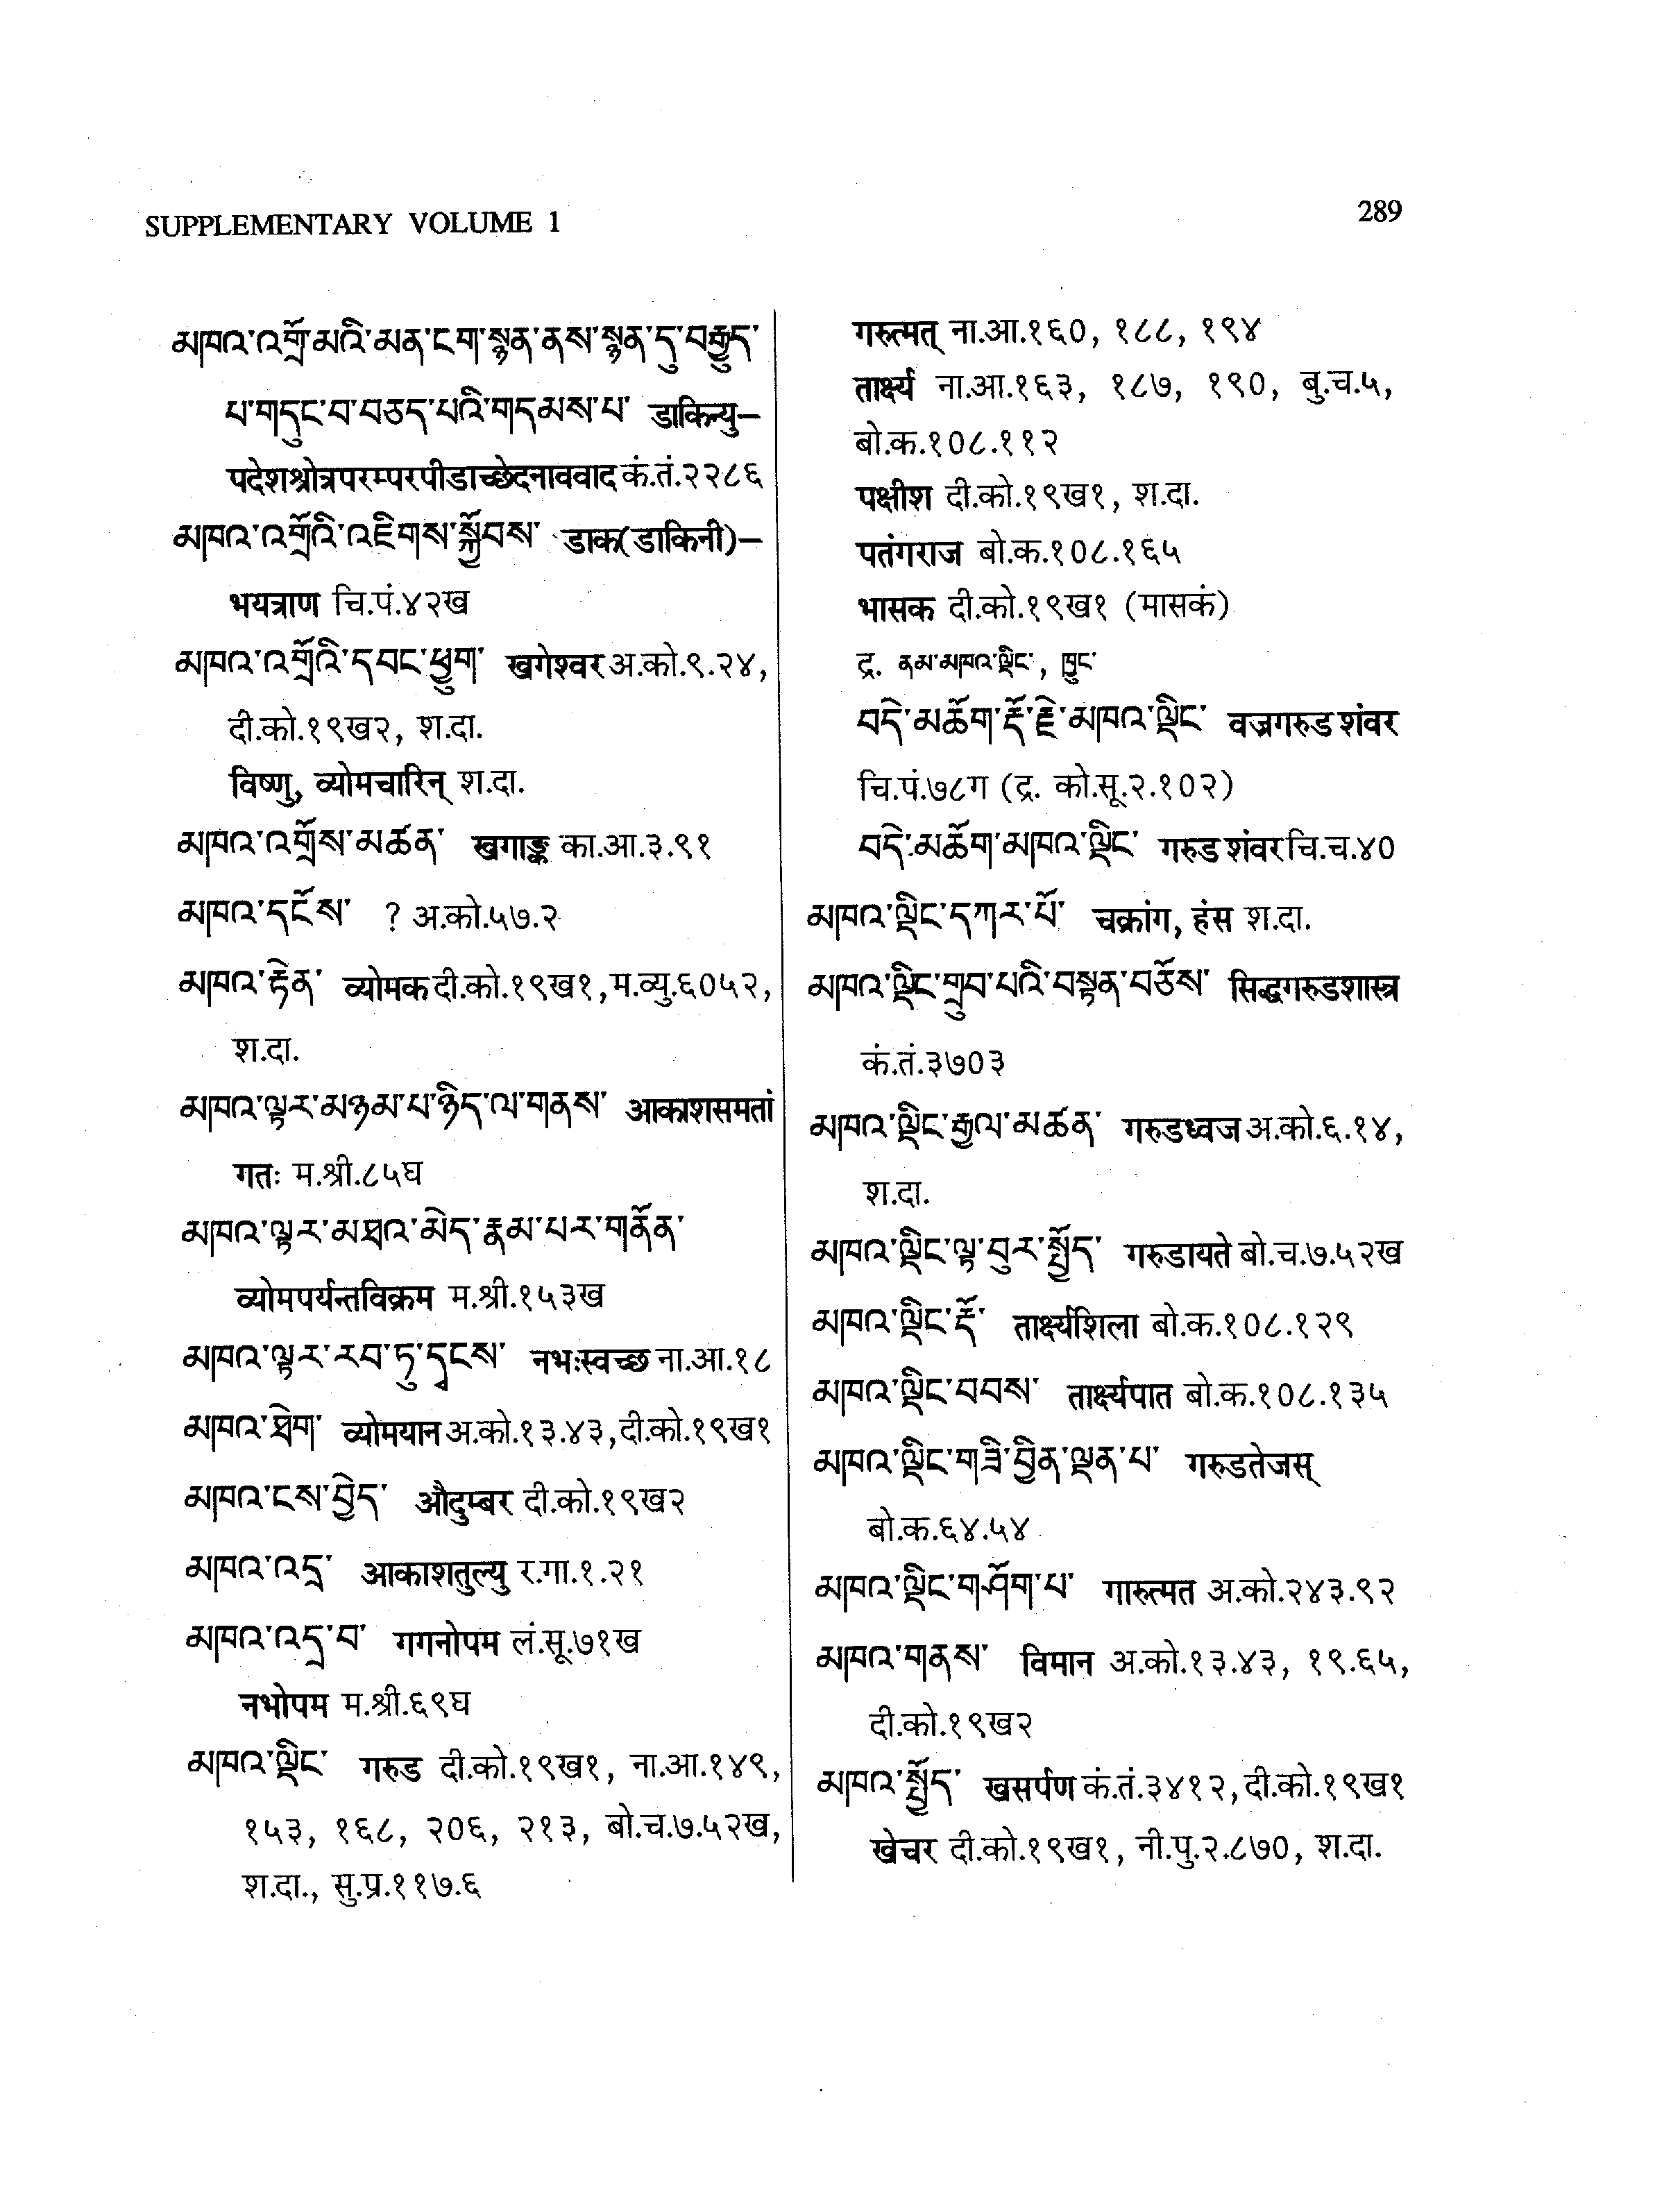 SUPPLEMENTARY VOLUME 1
289
མཁའ་འགྲོ་མའི་མན་ངག་སྙན་ནས་སྙན་དུ་བརྒྱུད་
པ་གདུང་བ་བཅད་པའི་གདམས་པ་ डाकिन्यु–
पदेशश्रोत्रपरम्परपीडाच्छेदनाववाद कं.तं.२२८६
མཁའ་འགྲོའི་འཇིགས་སྐྱོབས་ डाक(डाकिनी)–
भयत्राण चि.पं.४२ख
མཁའ་འགྲོའི་དབང་ཕྱུག་ खगेश्वर अ.को.९.२४,
दी.को.१९ख२, श.दा.
विष्णु, व्योमचारिन् श.दा.
མཁའ་འགྲོས་མཚན་ खगाङ्क का.आ.३.९१
མཁའ་དངོས་ ? अ.को.५७.२
མཁའ་རྟེན་ व्योमक दी.को.१९ख१, म.व्यु.६०५२,
श.दा.
མཁའ་ལྟར་མཉམ་པ་ཉིད་ལ་གནས་ आकाशसमतां
गतः म.श्री.८५घ
མཁའ་ལྟར་མཐའ་མེད་རྣམ་པར་གནོན་
व्योमपर्यन्तविक्रम म.श्री.१५३ख
མཁའ་ལྟར་རབ་ཏུ་དྭངས་ नभःस्वच्छ ना.आ.१८
མཁའ་ཐེག་ व्योमयान अ.को.१३.४३, दी.को.१९ख१
མཁའ་ངས་བྱེད་ औदुम्बर दी.को.१९ख२
མཁའ་འདྲ་ आकाशतुल्यु र.गा.१.२१
མཁའ་འདྲ་བ་ गगनोपम लं.सू.७१ख
नभोपम म.श्री.६९घ
མཁའ་ལྡིང་ गरुड दी.को.१९ख१, ना.आ.१४९,
१५३, १६८, २०६, २१३, बो.च.७.५२ख,
श.दा., सु.प्र.११७.६
गरुत्मत् ना.आ.१६०, १८८, १९४
तार्क्ष्य ना.आ.१६३, १८७, १९०, बु.च.५,
बो.क.१०८.११२
पक्षीश दी.को.१९ख१, श.दा.
पतंगराज बो.क.१०८.१६५
भासक दी.को.१९ख१ (मासकं)
द्र. ནམ་མཁའ་ལྡིང་, ཁྱུང་
བདེ་མཆོག་རྡོ་རྗེ་མཁའ་ལྡིང་ वज्रगरुड शंवर
चि.पं.७८ग (द्र. को.सू.२.१०२)
བདེ་མཆོག་མཁའ་ལྡིང་ गरुड शंवर चि.च.४०
མཁའ་ལྡིང་དཀར་པོ་ चक्रांग, हंस श.दा.
མཁའ་ལྡིང་གྲུབ་པའི་བསྟན་བཅོས་ सिद्धगरुडशास्त्र
कं.तं.३७०३
མཁའ་ལྡིང་རྒྱལ་མཚན་ गरुडध्वज अ.को.६.१४,
श.दा.
མཁའ་ལྡིང་ལྟ་བུར་སྤྱོད་ गरुडायते बो.च.७.५२ख
མཁའ་ལྡིང་རྡོ་ तार्क्ष्यशिला बो.क.१०८.१२९
མཁའ་ལྡིང་བབས་ तार्क्ष्यपात बो.क.१०८.१३५
མཁའ་ལྡིང་གཟི་བྱིན་ལྡན་པ་ गरुडतेजस्
बो.क.६४.५४
མཁའ་ལྡིང་གཤོག་པ་ गारुत्मत अ.को.२४३.९२
མཁའ་གནས་ विमान अ.को.१३.४३, १९.६५,
दी.को.१९ख२
མཁའ་སྤྱོད་ खसर्पण कं.तं.३४१२, दी.को.१९ख१
खेचर दी.को.१९ख१, नी.पु.२.८७०, श.दा.